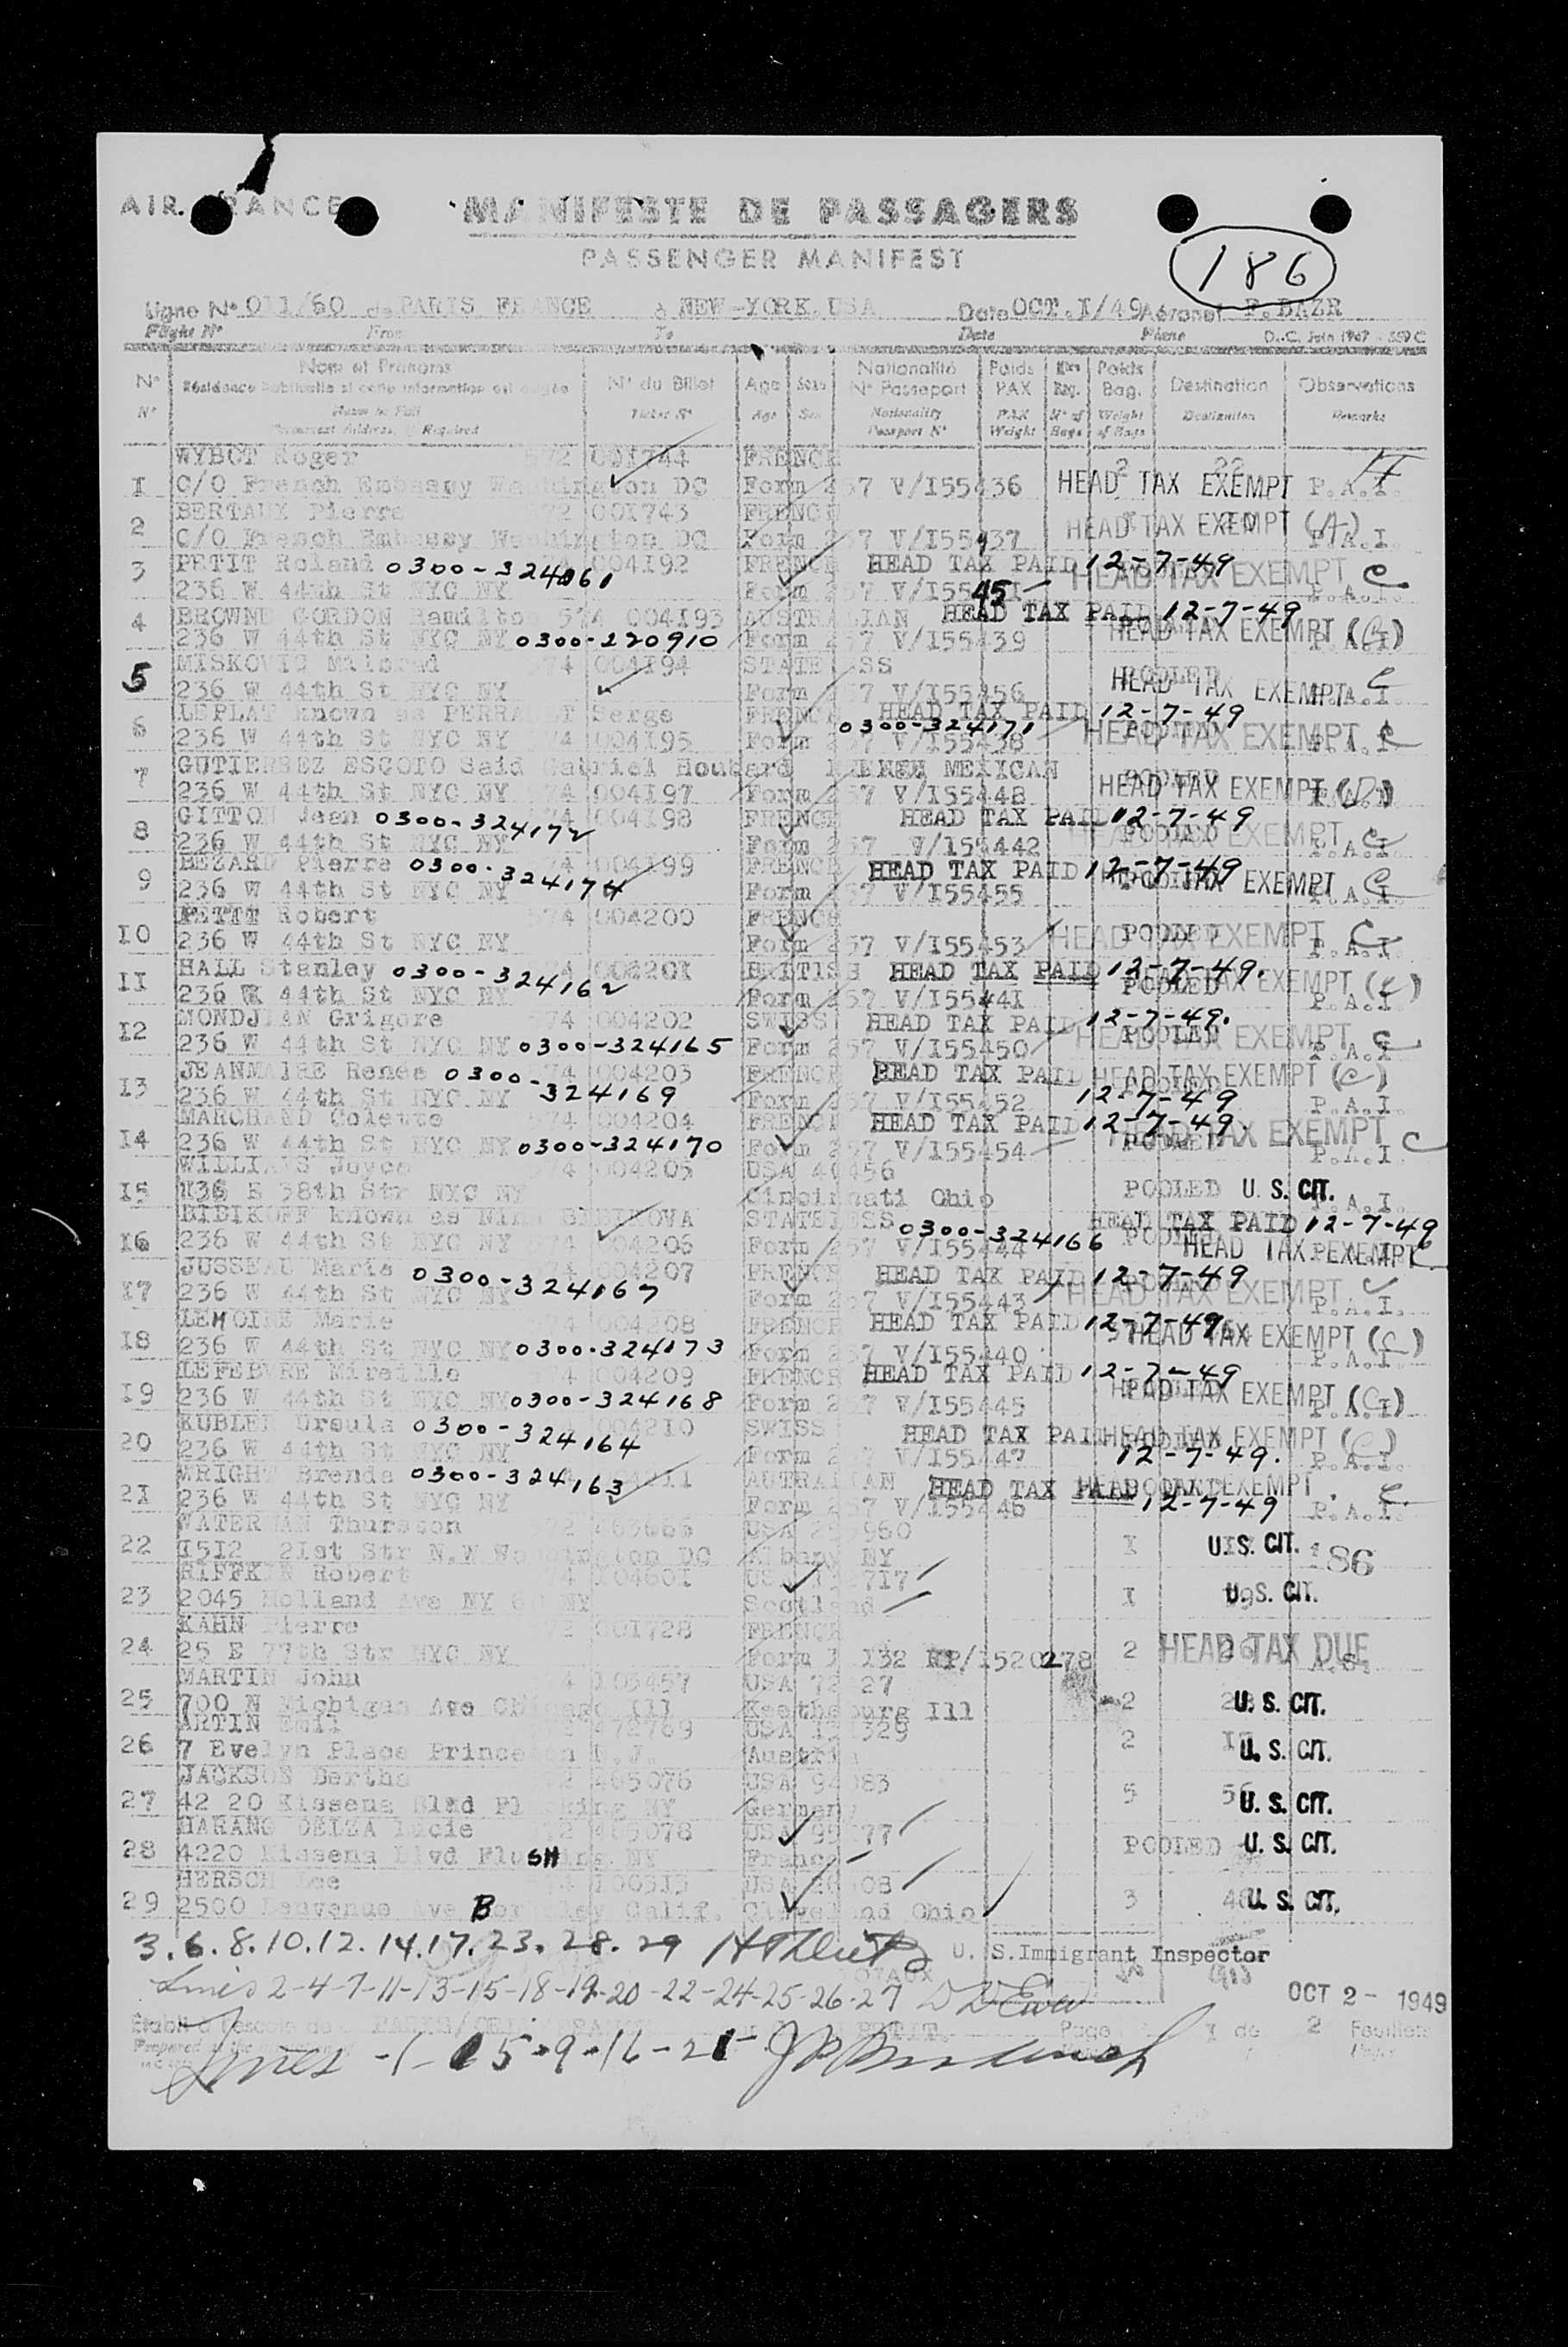 AIR FRANCE
MANIFESTE DE PASSAGERS
PASSENGER MANIFEST
186
Ligne N° 011/60 de PARIS FRANCE à NEW-YORK USA Date OCT.I/49 Aéronef F.BAZR
Flight N° From To Date Plane D.C. Juin 1947 - 559 C
N° Nom et Prénoms N° du Billet Age Sexe Nationalité N° Passeport Poids PAX Nbre Bag. Poids Bag. Destination Observations
N° Name in Full Ticket N° Age Sex Nationality Passport N° PAX Weight N° of Bags Weight of Bags Destination Remarks
WYBOT Roger 572 001744 FRENCH 2 22
I C/O French Embassy Washington DC Form 257 V/I55436 HEAD TAX EXEMPT P.A.I.
BERTAUX Pierre 572 001743 FRENCH
2 C/O French Embassy Washington DC Form 257 V/I55437 HEAD TAX EXEMPT (A) P.A.I.
3 PETIT Roland 0300-324161 004I92 FRENCH HEAD TAX PAID 12-7-49
236 W 44th St NYC NY Form 257 V/I55451 HEAD TAX EXEMPT C P.A.I.
4 BROWNE GORDON Hamilton 574 004I93 AUSTRALIAN HEAD TAX PAID 12-7-49
236 W 44th St NYC NY 0300-220910 Form 257 V/I55439 HEAD TAX EXEMPT (C)
5 MISKOVIC Milorad 574 004I94 STATELESS POOLED
236 W 44th St NYC NY Form 257 V/I55456 HEAD TAX EXEMPT C P.A.I.
6 LEPLAT known as PERRAULT Serge FRENCH HEAD TAX PAID 12-7-49
236 W 44th St NYC NY 574 004I95 0300-324171 Form 257 V/I55438 HEAD TAX EXEMPT C
7 GUTIERREZ ESCOTO Said Gabriel Houbard MEXICAN
236 W 44th St NYC NY 574 004I97 Form 257 V/I55448 HEAD TAX EXEMPT
8 GITTON Jean 0300-324172 574 004I98 FRENCH HEAD TAX PAID 12-7-49
236 W 44th St NYC NY Form 257 V/155442 HEAD TAX EXEMPT POOLED C P.A.I.
9 BEZARD Pierre 0300-324174 574 004I99 FRENCH HEAD TAX PAID 12-7-49
236 W 44th St NYC NY Form 257 V/I55455 HEAD TAX EXEMPT POOLED C P.A.I.
PETIT Robert 574 004200 FRENCH
I0 236 W 44th St NYC NY Form 257 V/I55453 HEAD TAX EXEMPT POOLED C P.A.I.
II HALL Stanley 0300-324162 574 004201 BRITISH HEAD TAX PAID 12-7-49.
236 W 44th St NYC NY Form 257 V/I55441 POOLED HEAD TAX EXEMPT (C) P.A.I.
I2 MONDJIAN Grigore 574 004202 SWISS HEAD TAX PAID 12-7-49.
236 W 44th St NYC NY 0300-324165 Form 257 V/I55450 HEAD TAX EXEMPT POOLED C P.A.I.
I3 JEANMAIRE Renee 0300-324169 574 004203 FRENCH HEAD TAX PAID HEAD TAX EXEMPT (C)
236 W 44th St NYC NY Form 257 V/I55452 12-7-49 P.A.I.
MARCHAND Colette 574 004204 FRENCH HEAD TAX PAID 12-7-49.
I4 236 W 44th St NYC NY 0300-324170 Form 257 V/I55454 HEAD TAX EXEMPT POOLED C P.A.I.
WILLIAMS Joyce 574 004205 USA 40456
I5 136 E 38th Str NYC NY Cincinnati Ohio POOLED U.S. CIT. P.A.I.
BIBIKOFF known as Nina BIBIKOVA STATELESS 0300-324166 HEAD TAX PAID 12-7-49
I6 236 W 44th St NYC NY 574 004206 Form 257 V/I55444 POOLED HEAD TAX EXEMPT C
JUSSEAU Marie 0300-324167 574 004207 FRENCH HEAD TAX PAID 12-7-49
I7 236 W 44th St NYC NY Form 257 V/I55443 HEAD TAX EXEMPT C P.A.I.
LEMOINE Marie 574 004208 FRENCH HEAD TAX PAID 12-7-49
I8 236 W 44th St NYC NY 0300-324173 Form 257 V/I55440 HEAD TAX EXEMPT (C) P.A.I.
LEFEBVRE Mireille 574 004209 FRENCH HEAD TAX PAID 12-7-49
I9 236 W 44th St NYC NY 0300-324168 Form 257 V/I55445 HEAD TAX EXEMPT (C) P.A.I.
KUBLER Ursula 0300-324164 574 004210 SWISS HEAD TAX PAID HEAD TAX EXEMPT (C)
20 236 W 44th St NYC NY Form 257 V/I55447 12-7-49. P.A.I.
WRIGHT Brenda 0300-324163 AUTRALIAN HEAD TAX PAID HEAD TAX EXEMPT C.
2I 236 W 44th St NYC NY Form 257 V/I55446 12-7-49 P.A.I.
WATERMAN Thurston 572 USA 960
22 I5I2 2Ist Str N.W Washington DC Albany NY I U.S. CIT. 186
RIFFKIN Robert 574 104601 USA 717
23 2045 Holland Ave NY NY Scotland I U.S. CIT.
KAHN Pierre 572 001728 FRENCH
24 25 E 77th Str NYC NY Form I 132 RP/1520278 2 26 HEAD TAX DUE
MARTIN John 105457 USA 72 27
25 700 N Michigan Ave Chicago Ill Keethsburg Ill 2 U.S. CIT.
ARTIN Emil 472769 USA 329
26 7 Evelyn Place Princeton N.J. Austria 2 U.S. CIT.
JACKSON Bertha 572 465076 USA 94083
27 42 20 Kissena Blvd Flushing NY Germany 5 56 U.S. CIT.
HARANG DELZA Lucie 572 465078 USA 95 77
28 4220 Kissena Blvd Flushing NY France POOLED U.S. CIT.
HERSCH Lee USA 08
29 2500 Benvenue Ave Berkeley Calif. Cleveland Ohio 3 U.S. CIT.
3.6.8.10.12.14.17.23.28.29 U. S. Immigrant Inspector
Lines 2-4-7-11-13-15-18-19-20-22-24-25-26-27 OCT 2 - 1949
Etabli à l'escale de PARIS/ORLY PETIT Page I de 2 Feuillets
Prepared
Lines -1-5-9-16-21-